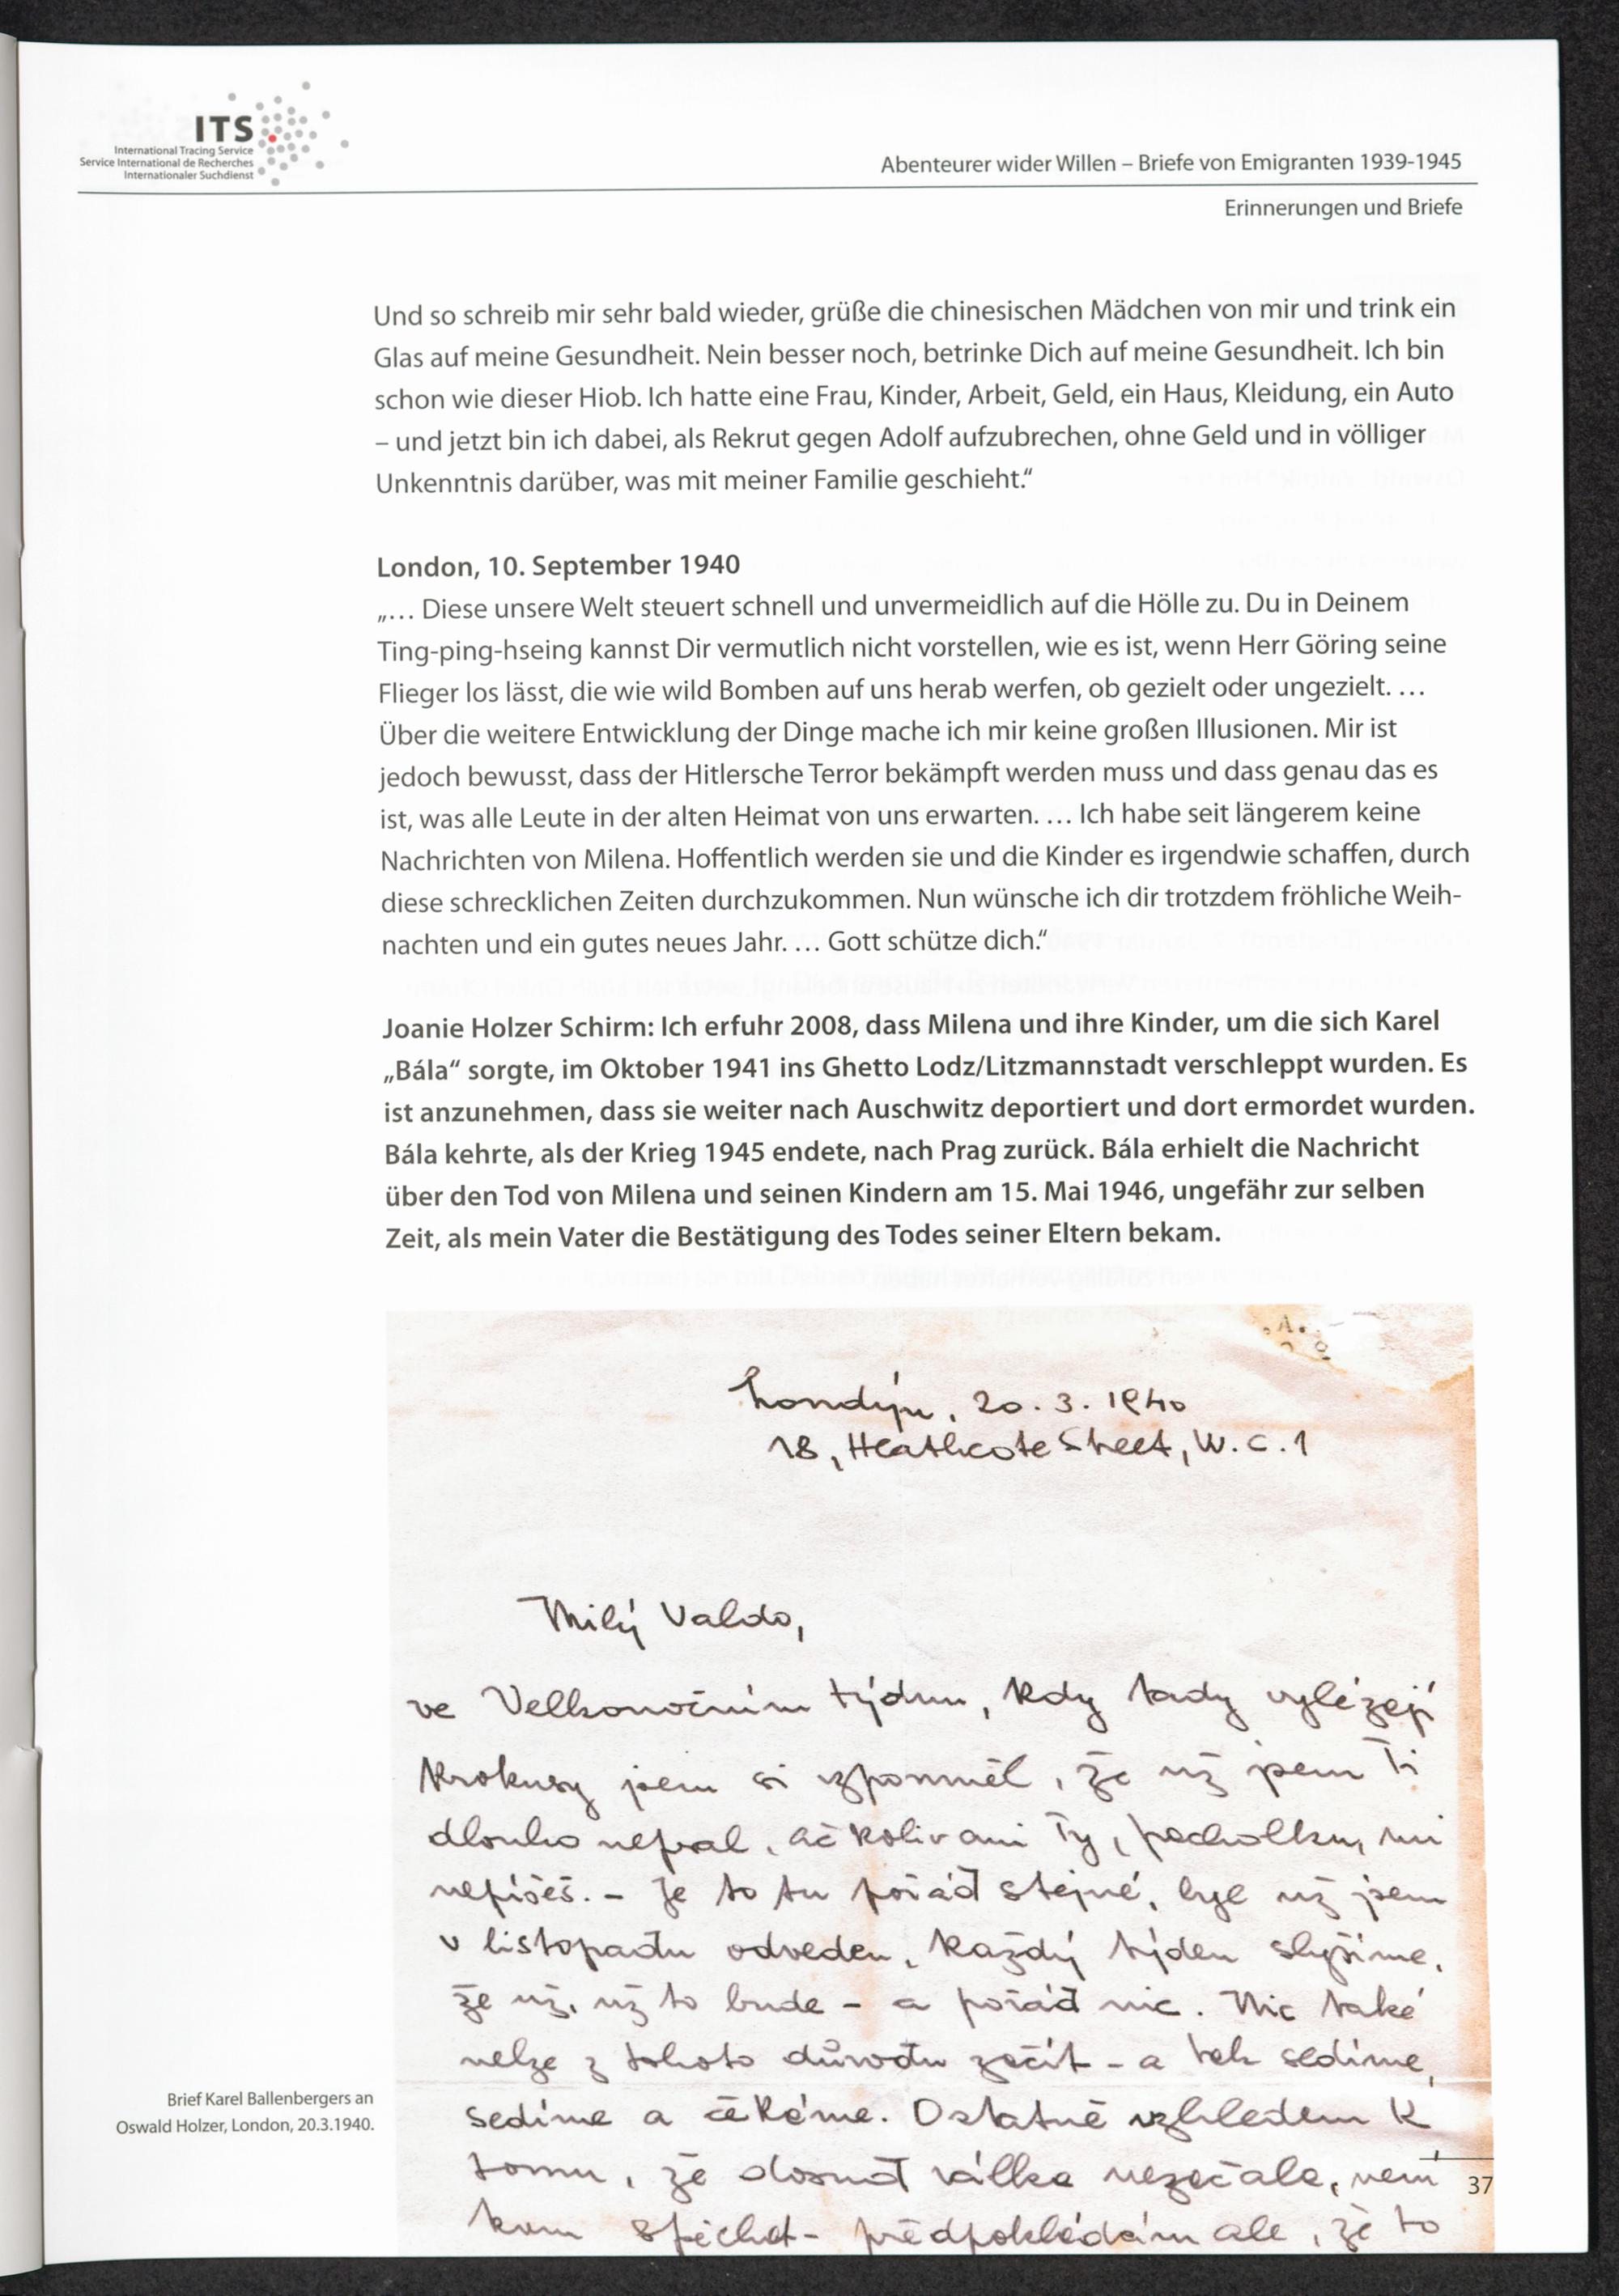 ITS
International Tracing Service
Service International de Recherches
Internationaler Suchdienst
Abenteurer wider Willen – Briefe von Emigranten 1939-1945
Erinnerungen und Briefe
Und so schreib mir sehr bald wieder, grüße die chinesischen Mädchen von mir und trink ein
Glas auf meine Gesundheit. Nein besser noch, betrinke Dich auf meine Gesundheit. Ich bin
schon wie dieser Hiob. Ich hatte eine Frau, Kinder, Arbeit, Geld, ein Haus, Kleidung, ein Auto
– und jetzt bin ich dabei, als Rekrut gegen Adolf aufzubrechen, ohne Geld und in völliger
Unkenntnis darüber, was mit meiner Familie geschieht.“
London, 10. September 1940
„… Diese unsere Welt steuert schnell und unvermeidlich auf die Hölle zu. Du in Deinem
Ting-ping-hseing kannst Dir vermutlich nicht vorstellen, wie es ist, wenn Herr Göring seine
Flieger los lässt, die wie wild Bomben auf uns herab werfen, ob gezielt oder ungezielt. …
Über die weitere Entwicklung der Dinge mache ich mir keine großen Illusionen. Mir ist
jedoch bewusst, dass der Hitlersche Terror bekämpft werden muss und dass genau das es
ist, was alle Leute in der alten Heimat von uns erwarten. … Ich habe seit längerem keine
Nachrichten von Milena. Hoffentlich werden sie und die Kinder es irgendwie schaffen, durch
diese schrecklichen Zeiten durchzukommen. Nun wünsche ich dir trotzdem fröhliche Weih-
nachten und ein gutes neues Jahr. … Gott schütze dich.“
Joanie Holzer Schirm: Ich erfuhr 2008, dass Milena und ihre Kinder, um die sich Karel
„Bála“ sorgte, im Oktober 1941 ins Ghetto Lodz/Litzmannstadt verschleppt wurden. Es
ist anzunehmen, dass sie weiter nach Auschwitz deportiert und dort ermordet wurden.
Bála kehrte, als der Krieg 1945 endete, nach Prag zurück. Bála erhielt die Nachricht
über den Tod von Milena und seinen Kindern am 15. Mai 1946, ungefähr zur selben
Zeit, als mein Vater die Bestätigung des Todes seiner Eltern bekam.
Londýn, 20. 3. 1940
18, Heathcote Street, W. C. 1
Milý Valdo,
ve Velkonočním týdnu, kdy tady vylézejí
krokusy jsem si vzpomněl, že už jsem Ti
dlouho nepsal, ačkoliv ani Ty, pacholku, mi
nepíšeš. – Je to tu pořád stejné, byl už jsem
v listopadu odveden, každý týden slyšíme,
že už, už to bude – a pořád nic. Nic také
nelze z tohoto důvodu začít – a tak sedíme,
sedíme a čekáme. Ostatně vzhledem k
tomu, že dosud válka nezačala, není
kam spěchat – předpokládám ale, že to
Brief Karel Ballenbergers an
Oswald Holzer, London, 20.3.1940.
37